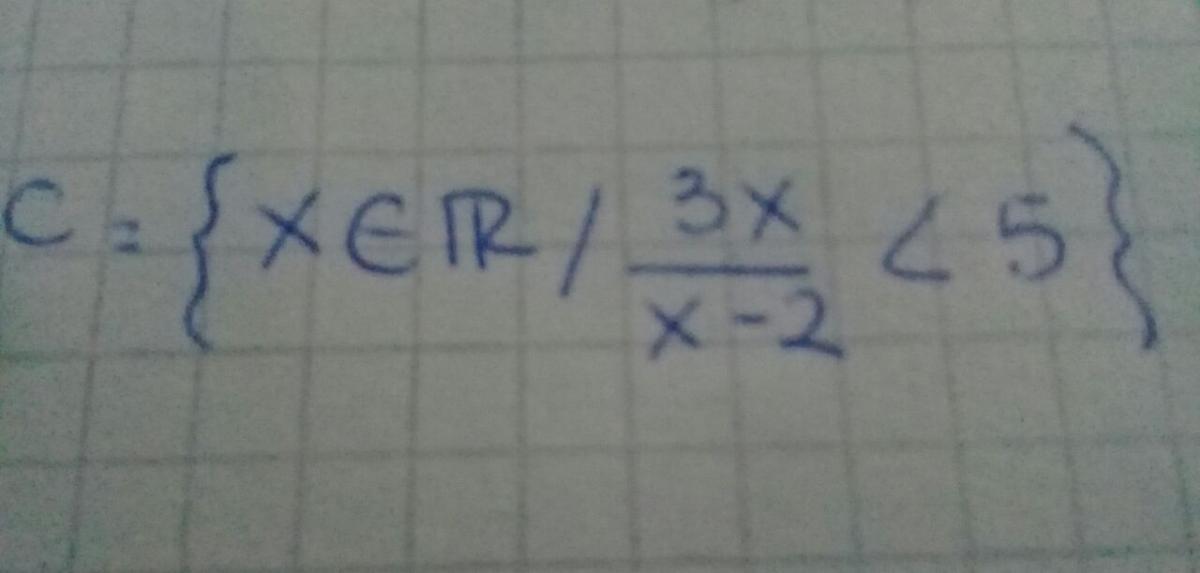 C = { x ∈ ℝ / 3x/(x-2) < 5 }